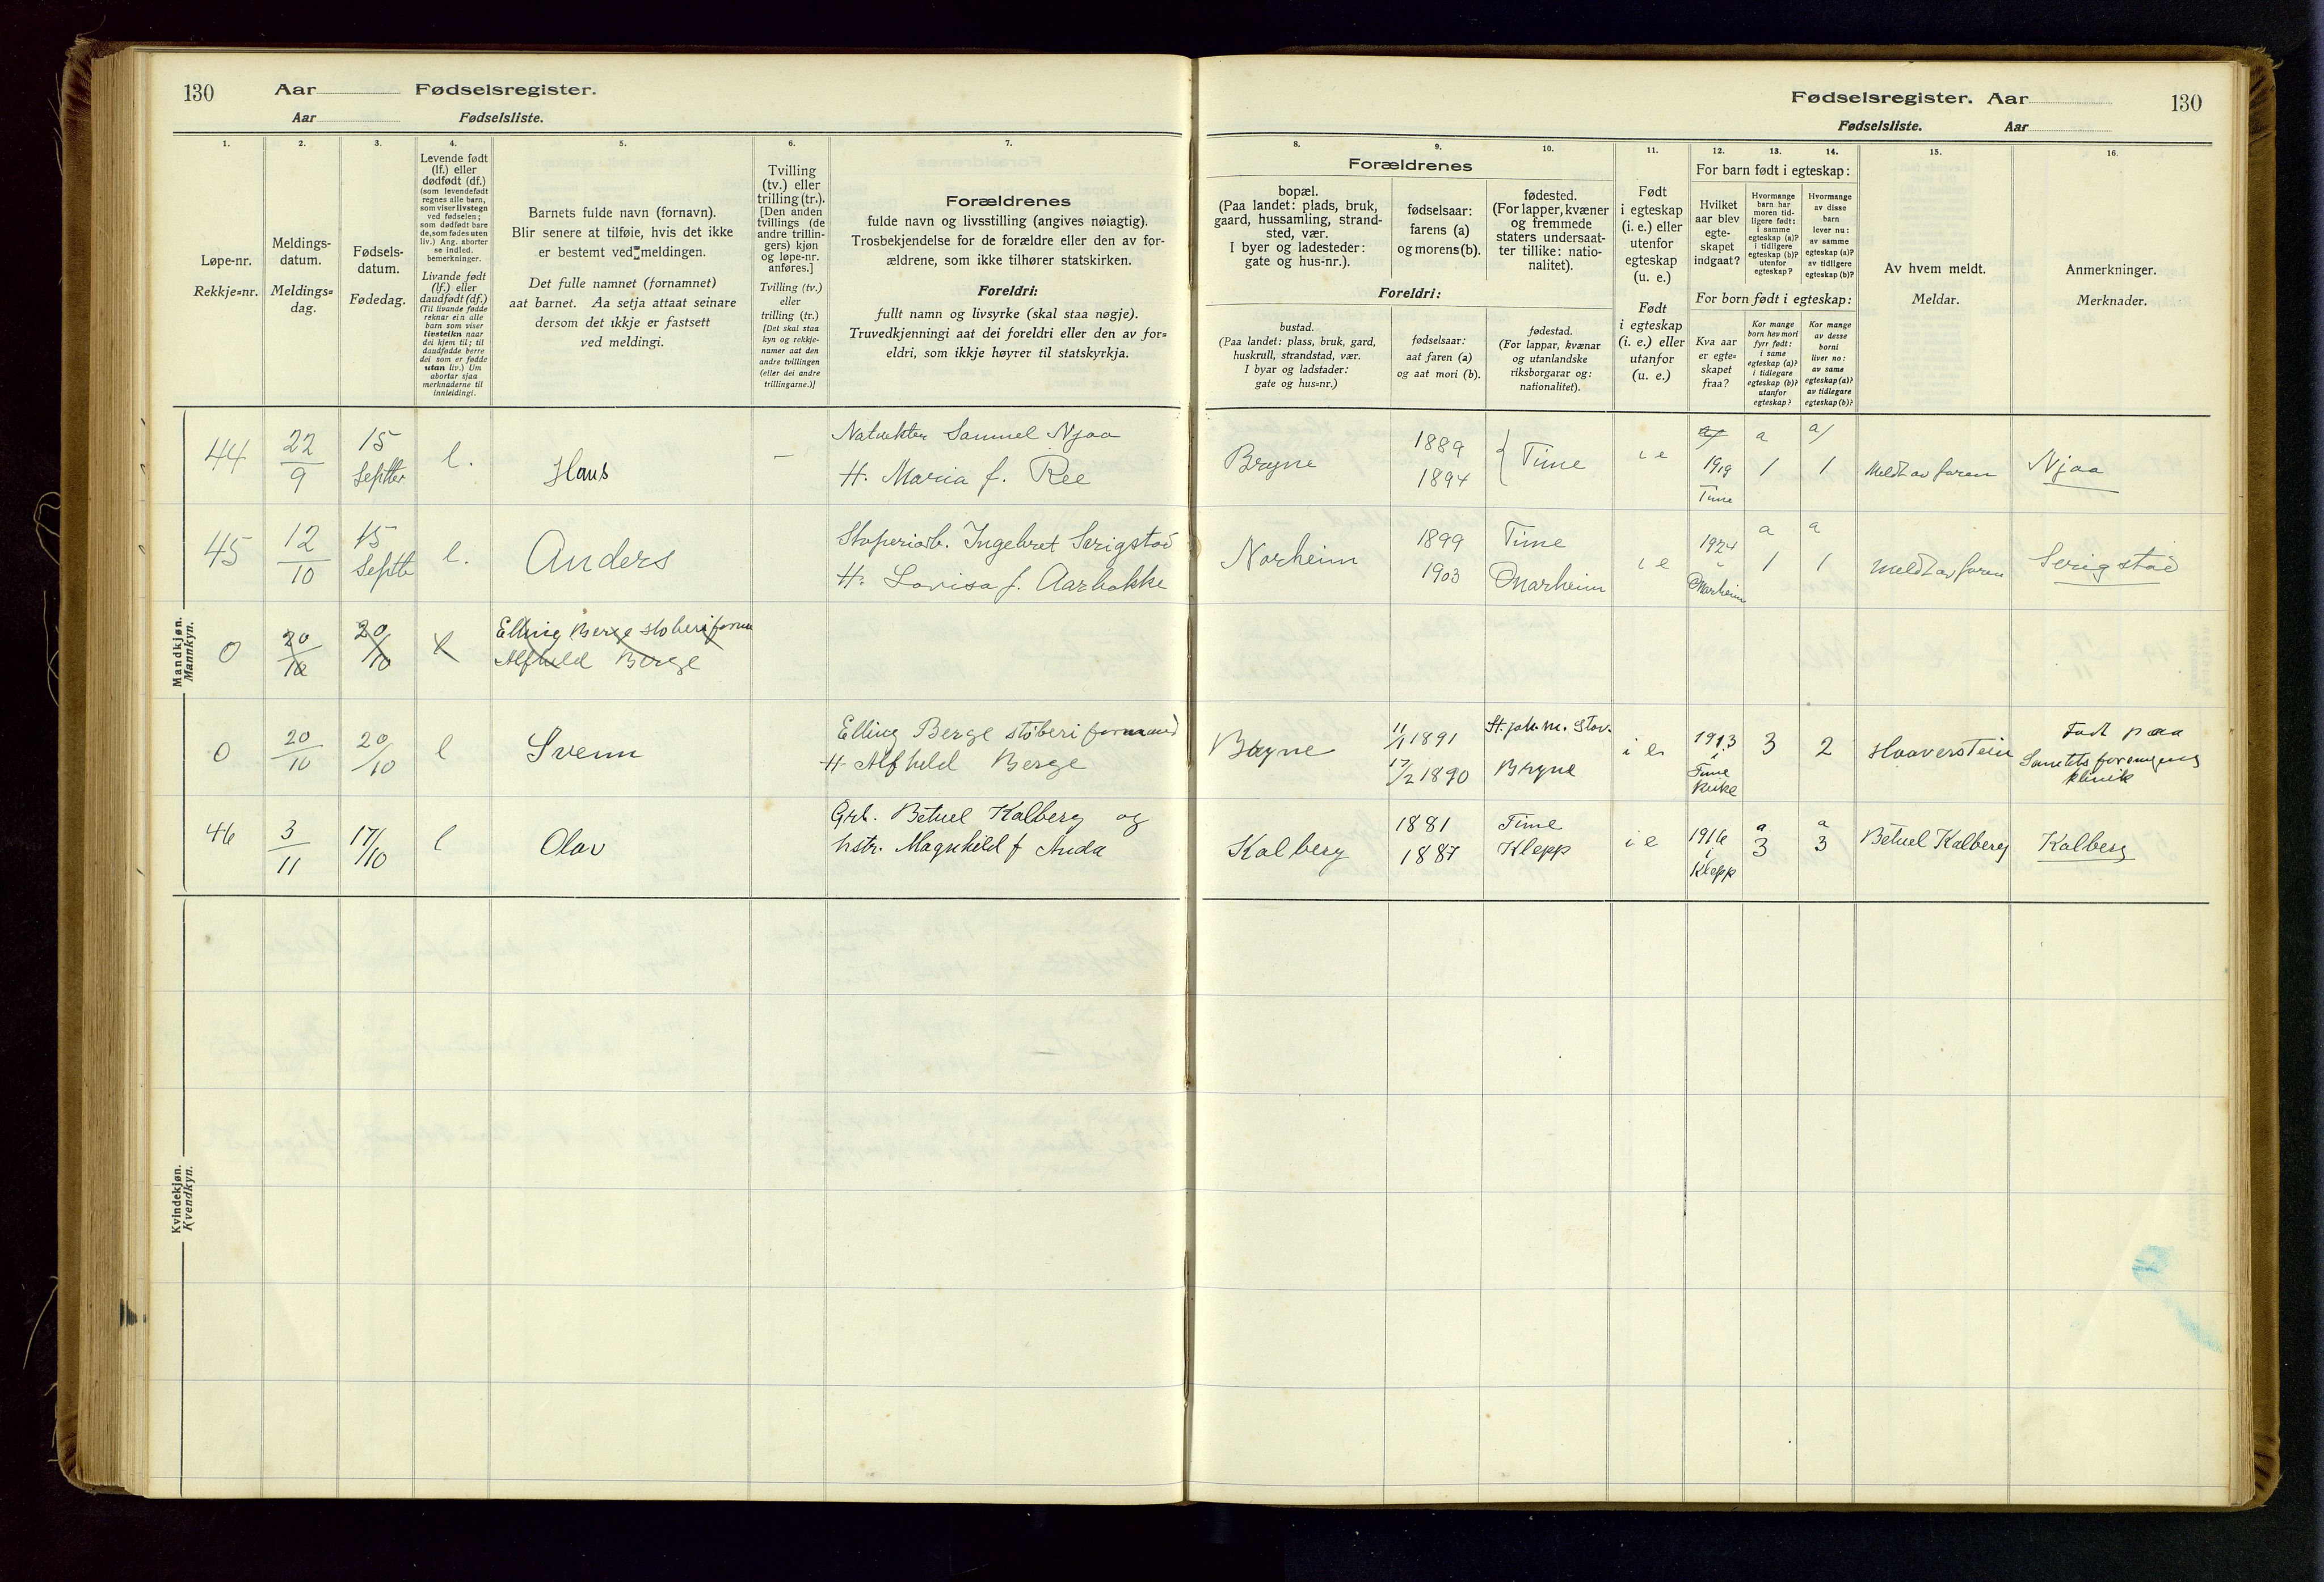 130 Aar Fødselsregister.
Aar Fødselsliste.
Fødselsregister. Aar 130
Fødselsliste. Aar
1.
Løpe-nr.
Rekkje=nr.
2.
Meldings-
datum.
Meldings=
dag.
3.
Fødsels-
datum.
Fødedag.
4.
Levende født
(lf.) eller
dødfødt (df.)
(som levendefødt
regnes alle barn,
som viser livstegn
ved fødselen;
som dødfødt bare
de, som fødes uten
liv.) Ang. aborter
se indled.
bemerkninger.
Livande født
(lf.) eller
daudfødt (df.)
(Til livande fødde
reknar ein alle
barn som viser
livsteikn naar
dei kjem til; til
daudfødde berre
dei som er fødde
utan liv.) Um
abortar sjaa
merknaderne til
innleidingi.
5.
Barnets fulde navn (fornavn).
Blir senere at tilføie, hvis det ikke
er bestemt ved meldingen.
Det fulle namnet (fornamnet)
aat barnet. Aa setja attaat seinare
dersom det ikkje er fastsett
ved meldingi.
6.
Tvilling
(tv.) eller
trilling (tr.).
[Den anden
tvillings (de
andre trillin-
gers) kjøn
og løpe-nr.
anføres.]
Tvilling (tv.)
eller
trilling (tr.)
[Det skal staa
kyn og rekkje-
numer aat den
andre tvillingen
(eller dei andre
trillingarne.)]
7.
Forældrenes
fulde navn og livsstilling (angives nøiagtig).
Trosbekjendelse for de forældre eller den av for-
ældrene, som ikke tilhører statskirken.
Foreldri:
fullt namn og livsyrke (skal staa nøgje).
Truvedkjenningi aat dei foreldri eller den av for=
eldri, som ikkje høyrer til statskyrkja.
8. 9. 10.
Forældrenes
bopæl.
(Paa landet: plads, bruk,
gaard, hussamling, strand-
sted, vær.
I byer og ladesteder:
gate og hus-nr.).
fødselsaar:
farens (a)
og morens (b).
fødested.
(For lapper, kvæner
og fremmede
staters undersaat-
ter tillike: natio-
nalitet).
Foreldri:
bustad.
(Paa landet: plass, bruk, gard,
huskrull, strandstad, vær.
I byar og ladstader:
gate og hus=nr.)
fødselsaar:
aat faren (a)
og aat mori (b).
fødestad.
(For lappar, kvænar
og utanlandske
riksborgarar og:
nationalitet).
11.
Født
i egteskap
(i. e.) eller
utenfor
egteskap
(u. e.)
Født
i egteskap
(i. e.) eller
utanfor
(u. e.)
12. 13. 14.
For barn født i egteskap:
Hvilket
aar blev
egte-
skapet
indgaat?
Hvormange
barn har
moren tid-
ligere født:
i samme
egteskap (a)?
i tidligere
egteskap (b)?
utenfor
egteskap?
Hvormange
av disse
barn
lever nu:
av samme
egteskap (a)?
av tidligere
egteskap (b)?
For born født i egteskap:
Kva aar
er egte-
skapet
fraa?
Kor mange
born hev mori
fyrr født:
i same
egteskap (a)?
i tidlegare
egteskap (b)?
utanfor
egteskap?
Kor mange
av desse
borni
liver no:
av same
egteskap (a)?
av tidlegare
egteskap (b)?
15.
Av hvem meldt.
Meldar.
16.
Anmerkninger.
Merknader.
Mandkjøn.
Mannkyn.
44 22/9 15 Septber l. Hans –
Samuel Njaa
H. Maria f. Ree
Bryne 1889 1894 Time i e a/ 1919 Time a 1 a/ 1 Meldt av faren Njaa
45 12/10 15 Septb l. Anders
Ingebret Serigstad
H. Lovisa f. Aarbakke
Norheim 1899 1903 Time Marheim i e 1924 Marheim a 1 a 1 Meldt av faren Serigstad
0 20/10 20/10 l Elling Berge støberiform
Alfhild Berge
0 20/10 20/10 l Svenn
Elling Berge støberiformand
H. Alfhild Berge
Bryne 11/1 1891 17/2 1890 St. joh. m. Stav. Bryne i e 1913 i Time Kirke 3 2 Haaverstein Født paa
Sanitetsforeningens
klinik
46 3/11 17/10 l Olav
Grb. Betuel Kalberg og
hstr. Magnhild f Anda
Kalberg 1881 1887 Time Klepp i e 1916 i Klepp a 3 a 3 Betuel Kalberg Kalberg
Kvindekjøn.
Kvendkyn.